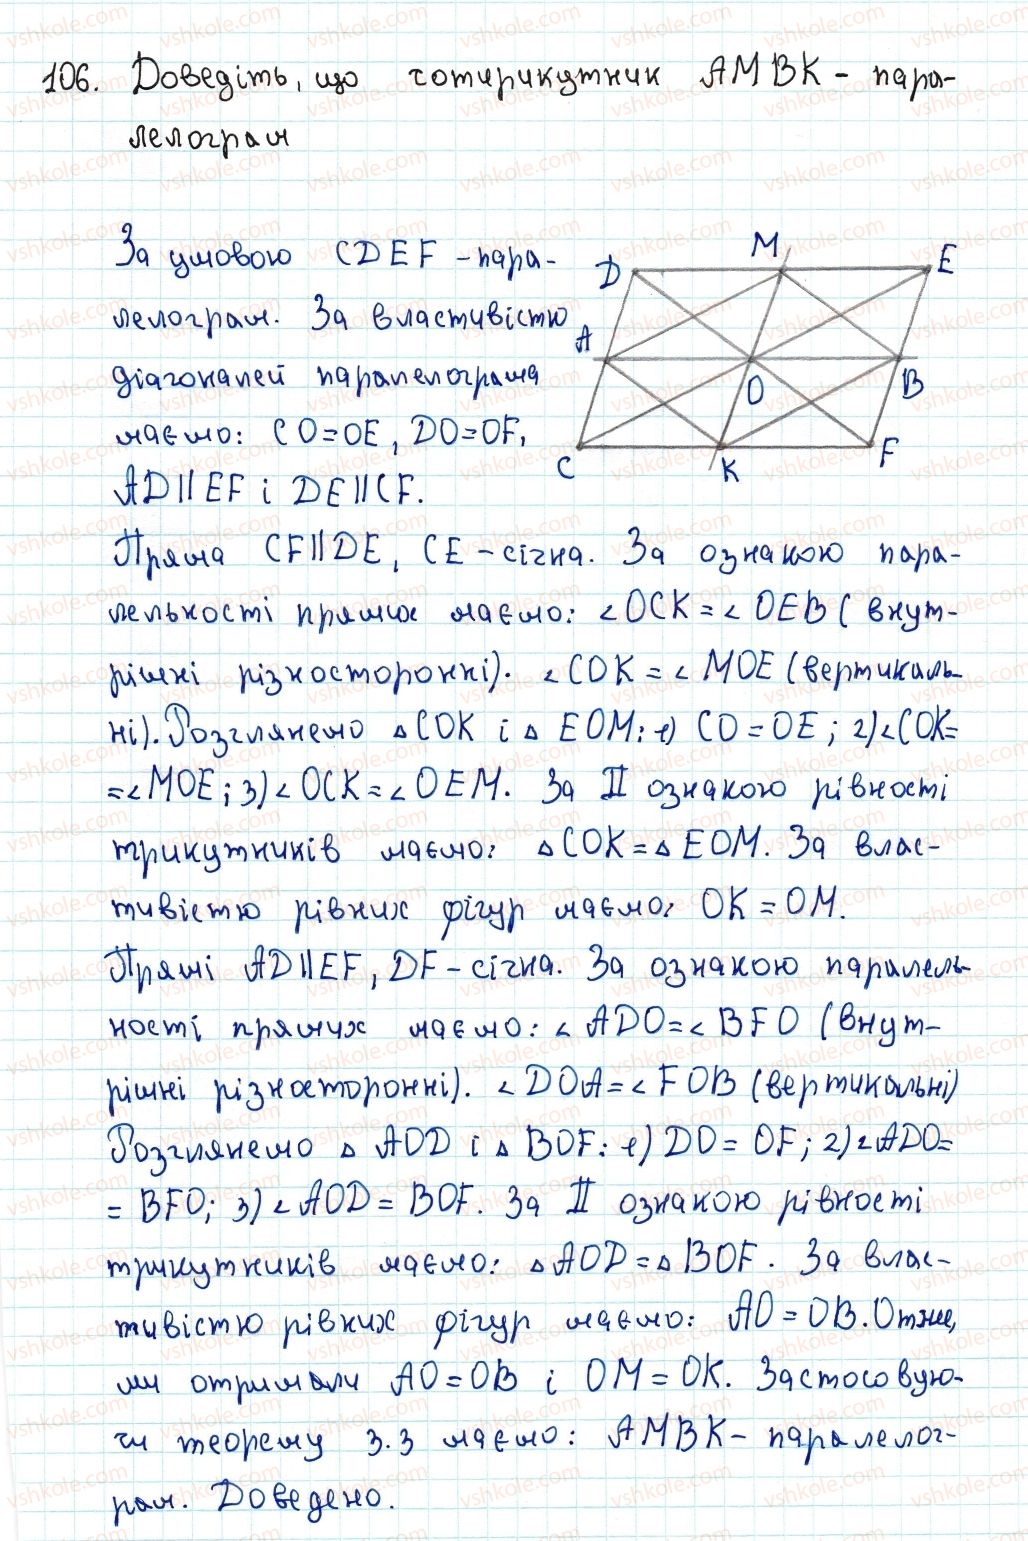 106. Доведіть, що чотирикутник AMBK - пара-
лелограм
За умовою CDEF - пара-
лелограм. За властивістю
діагоналей паралелограма
маємо: CO=OE, DO=OF,
AD||EF і DE||CF.
D M E
A O B
C K F
Пряма CF||DE, CE - січна. За ознакою пара-
лельності прямих маємо: ∠OCK=∠OEB (внут-
рішні різносторонні). ∠COK=∠MOE (вертикаль-
ні). Розглянемо △COK і △EOM: 1) CO=OE; 2) ∠COK=
=∠MOE; 3) ∠OCK=∠OEM. За II ознакою рівності
трикутників маємо: △COK=△EOM. За влас-
тивістю рівних фігур маємо: OK=OM.
Прямі AD||EF, DF - січна. За ознакою паралель-
ності прямих маємо: ∠ADO=∠BFO (внут-
рішні різносторонні). ∠DOA=∠FOB (вертикальні)
Розглянемо △AOD і △BOF: 1) DO=OF; 2) ∠ADO=
=BFO; 3) ∠AOD=BOF. За II ознакою рівності
трикутників маємо: △AOD=△BOF. За влас-
тивістю рівних фігур маємо: AO=OB. Отже,
ми отримали AO=OB і OM=OK. Застосовую-
чи теорему 3.3 маємо: AMBK - паралелог-
рам. Доведено.